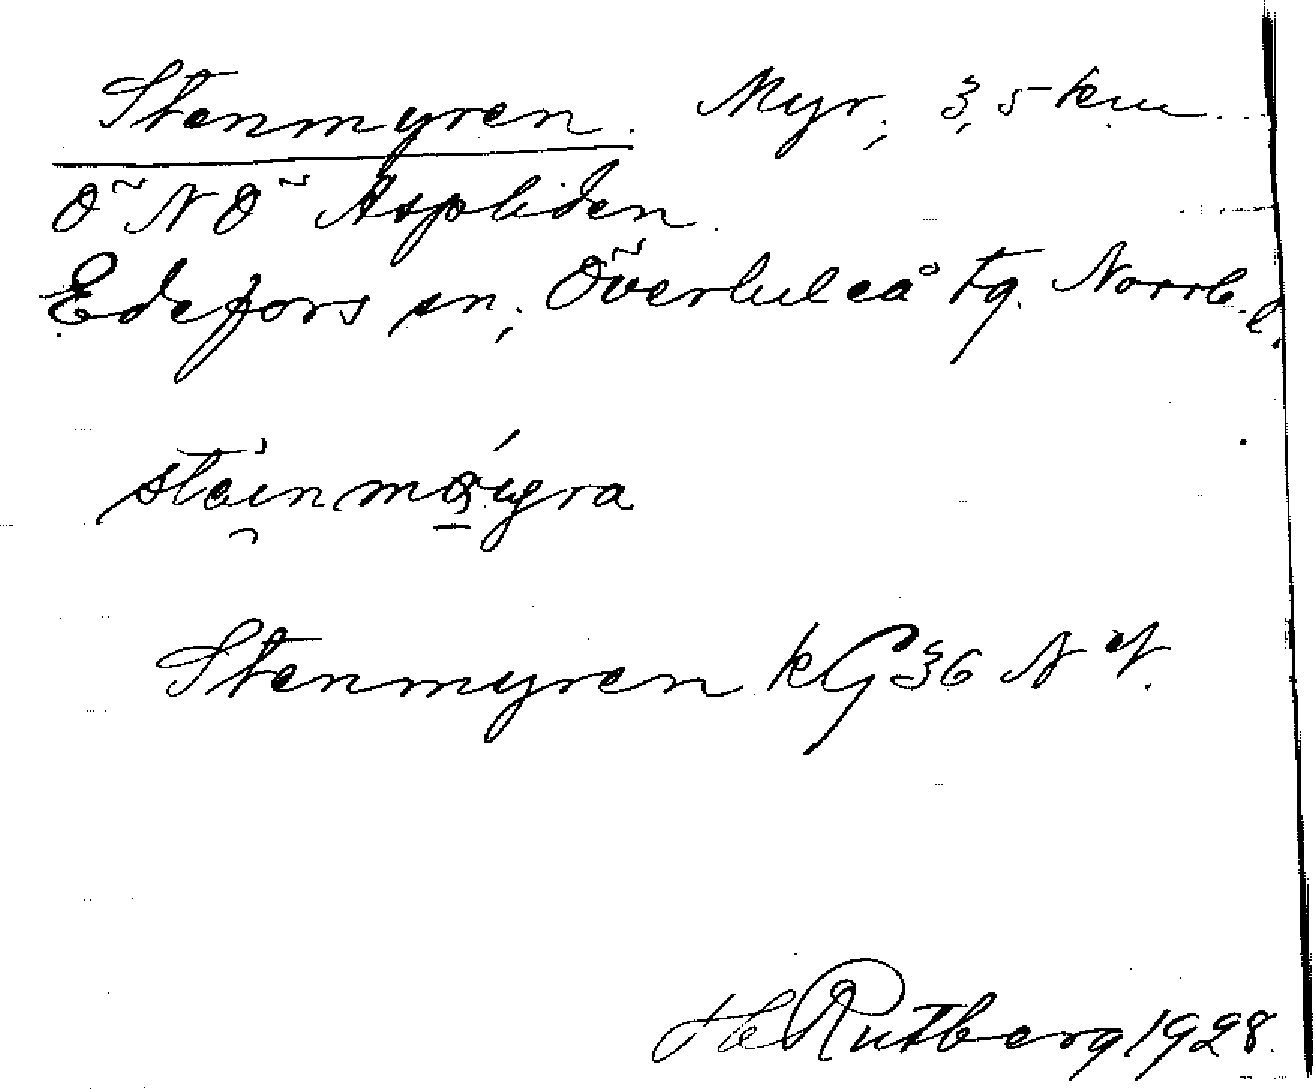 Stenmyren. Myr, 3,5 km
ÖNÖ Aspliden.
Edefors sn, Överluleå tg. Norrb. l.
Stenmyren kG 36 NV.
Hd Rutberg 1928.